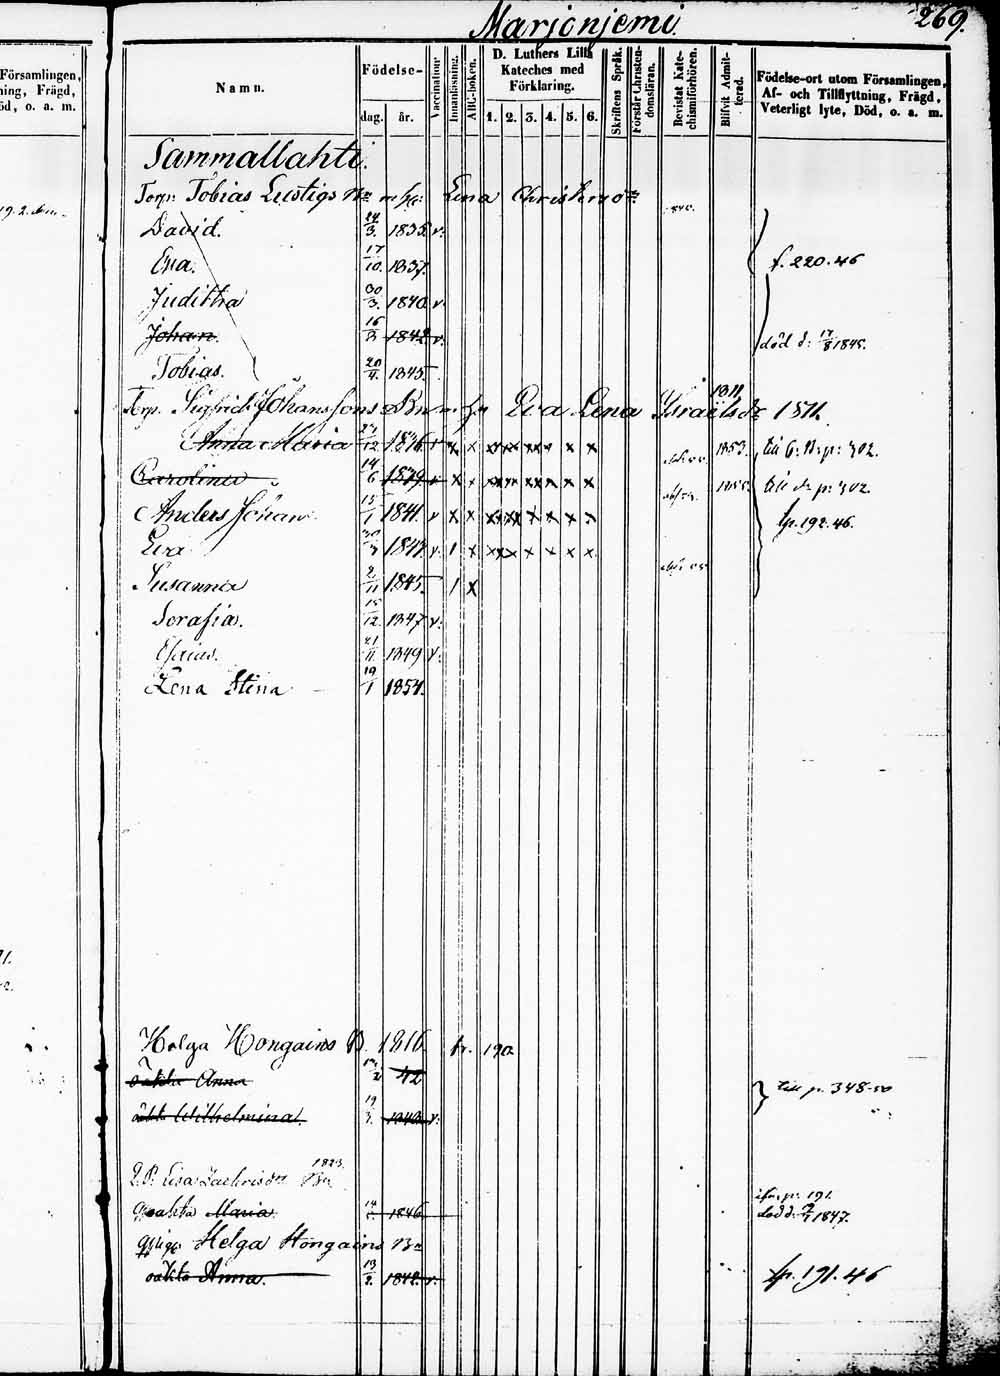 Marjonjemi.
269.
Församlingen,
ning, Frägd,
öd, o. a. m.
Namn.
Födelse-
dag. år.
Vaccination
Innanläsning.
ABC-boken.
D. Luthers Lilla
Kateches med
Förklaring.
1. 2. 3. 4. 5. 6.
Skriftens Språk.
Förstår Christen-
domsläran.
Bevistat Kate-
chismiförhören.
Blifvit Admit-
terad.
Födelse-ort utom Församlingen,
Af- och Tillflyttning, Frägd,
Veterligt lyte, Död, o. a. m.
Sammallahti.
Torp. Tobias Lustigs Bn m h: Lena
David. 24/3. 1835 v.
Eva. 17/10. 1837. f. 220. 46
Juditha 30/3. 1840 v.
Johan 16/2 1842 v. död d: 17/8 1845.
Tobias. 20/4. 1845.
Torp. Sigfrid Johanssons Bn m h Eva Lena Israelsdr 1811.
Anna Maria 12 1836 v x x x x x x x x 1853. till p: 302.
Carolina 14/6 1839 v x x x x x x x x till p: 302.
Anders Johan 15/1 1841. v x x x x x x x x fp. 192. 46.
Eva 1843 v. 1 x x x x x x x
Susanna 2/11 1845. 1 x
Serafia. 15/12. 1847 v.
Esaias. 21/11 1849 v.
Lena Stina 19/1 1854.
Helga Hongains B. 1816. fr. 190.
oäkta Anna 42 till p. 348-50
oäkta Wilhelmina. 19/3. 1843. v.
1823.
Lisa Zachrisdr
oäkta Maria. 14 1846 p. 191.
död d. 1847.
Helga Hongains Bn
oäkta Anna. 13/2. 1842. v. fp. 191. 46